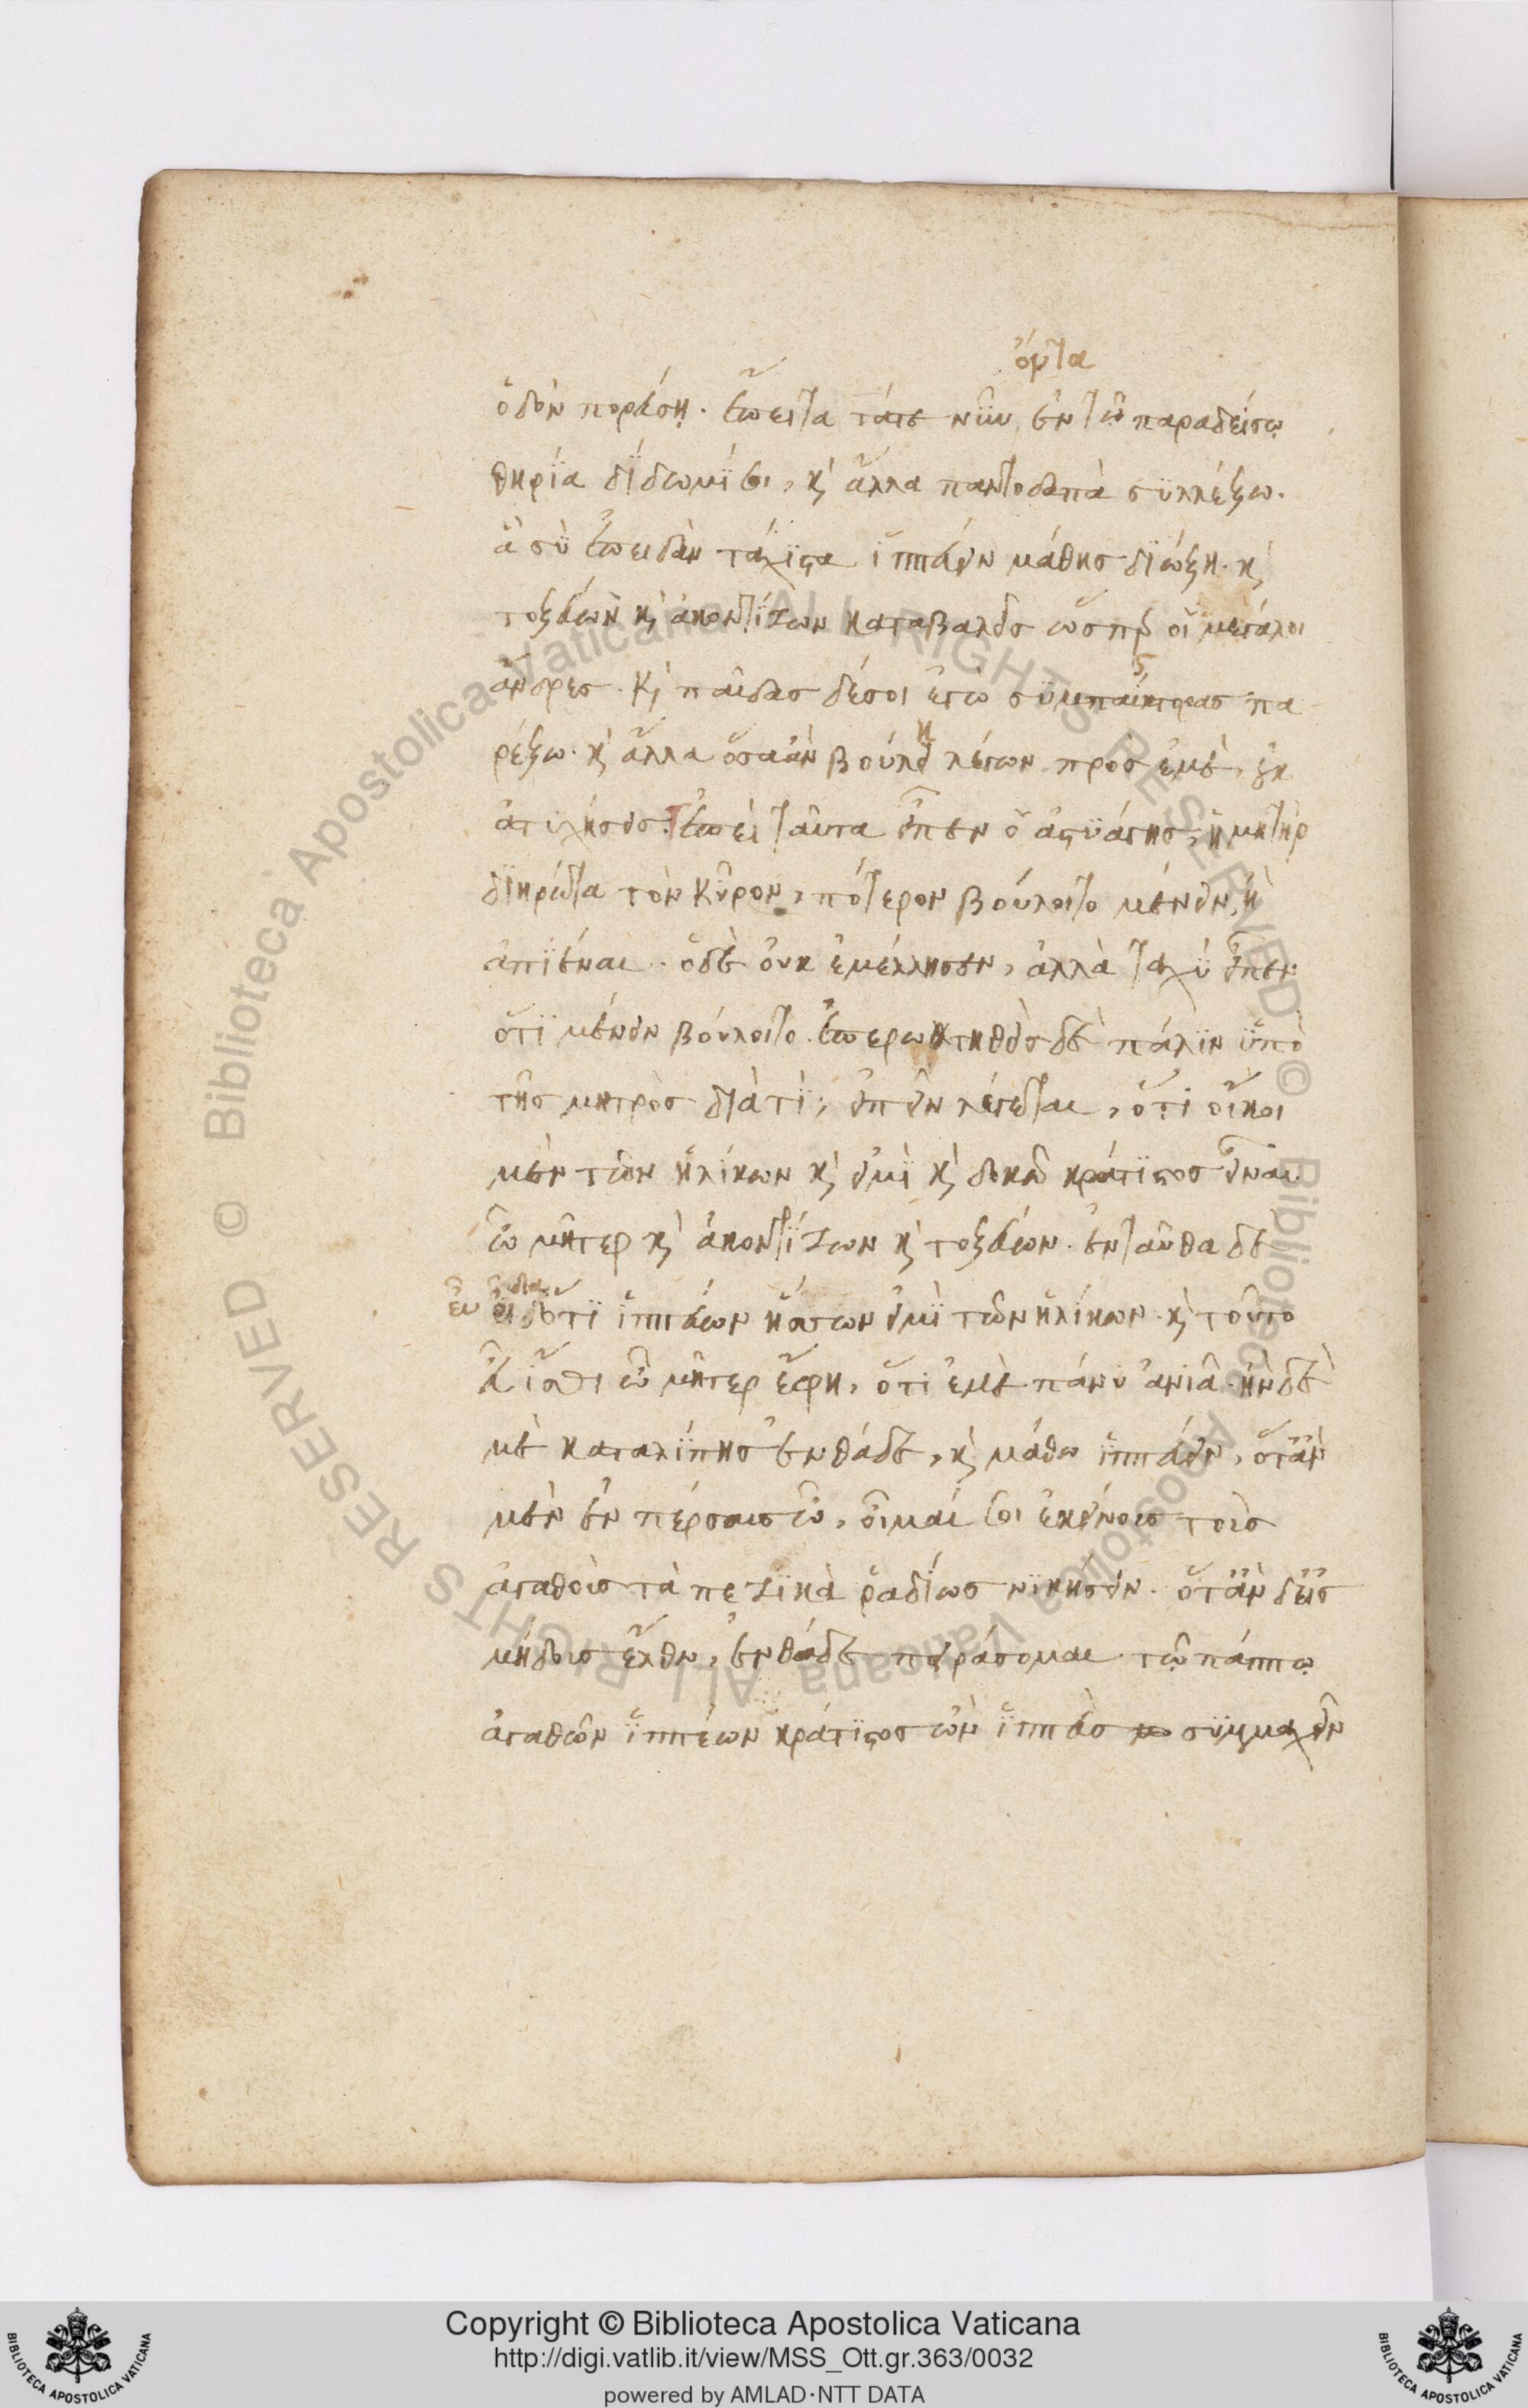 ὄντα
ὁδὸν πορεύσῃ. ἔπειτα τάτε νῦν ἐν τῷ παραδείσῳ
θηρία δίδωμί σοι, καὶ ἄλλα παντοδαπὰ συλλέξω.
ἃ σὺ ἐπειδὰν τάχιστα ἱππεύειν μάθῃς διώξῃ. καὶ
τοξεύων καὶ ἀκοντίζων καταβαλεῖς ὥσπερ οἱ μεγάλοι
ἄνδρες. καὶ παῖδας δέσοι ἐγὼ συμπαίκτορας πα
ρέξω. καὶ ἄλλα ὅσα ἂν βούλῃ λέγων πρὸς ἐμὲ, οὐκ
ἀτυχήσεις. ἐπεὶ ταῦτα εἶπεν ὁ ἀστυάγης, ἡ μήτηρ
διηρώτα τὸν κῦρον, πότερον βούλοιτο μένειν, ἢ
ἀπιέναι. ὁδὲ οὐκ ἐμέλλησεν, ἀλλὰ ταχὺ εἶπεν
ὅτι μένειν βούλοιτο. ἐπερωτηθεὶς δὲ πάλιν ὑπὸ
τῆς μητρὸς διὰ τί; εἰπεῖν λέγεται, ὅτι οἴκοι
μὲν τῶν ἡλίκων καὶ εἰμὶ καὶ δοκῶ κράτιστος εἶναι
ὦ μῆτερ καὶ ἀκοντίζων καὶ τοξεύων. ἐνταῦθα δὲ
εὖ οἶδ ὅτι ἱππεύων ἥττων εἰμὶ τῶν ἡλίκων. καὶ τοῦτο
εὖ ἴσθι ὦ μῆτερ ἔφη, ὅτι ἐμὲ πάνυ ἀνιᾷ. ἢν δὲ
μὲ καταλίπῃς ἐνθάδε, καὶ μάθω ἱππεύειν, ὅταν
μὲν ἐν πέρσαις ὦ, οἶμαί σοι ἐκείνοις τοῖς
ἀγαθοῖς τὰ πεζικὰ ῥαδίως νικήσειν. ὅταν δεἰς
μήδοις ἔλθω, ἐνθάδε πειράσομαι τῷ πάππῳ
ἀγαθῶν ἱππέων κράτιστος ὢν ἱππεὺς συμμαχεῖν
Biblioteca Apostolica Vaticana ALL RIGHTS RESERVED ©
Copyright © Biblioteca Apostolica Vaticana
http://digi.vatlib.it/view/MSS_Ott.gr.363/0032
powered by AMLAD·NTT DATA
BIBLIOTECA APOSTOLICA VATICANA
BIBLIOTECA APOSTOLICA VATICANA